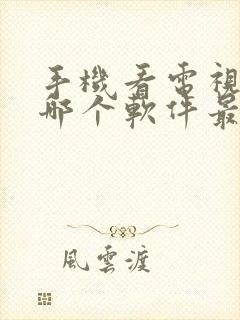 手機看電視
哪个軟件最
風雲渡